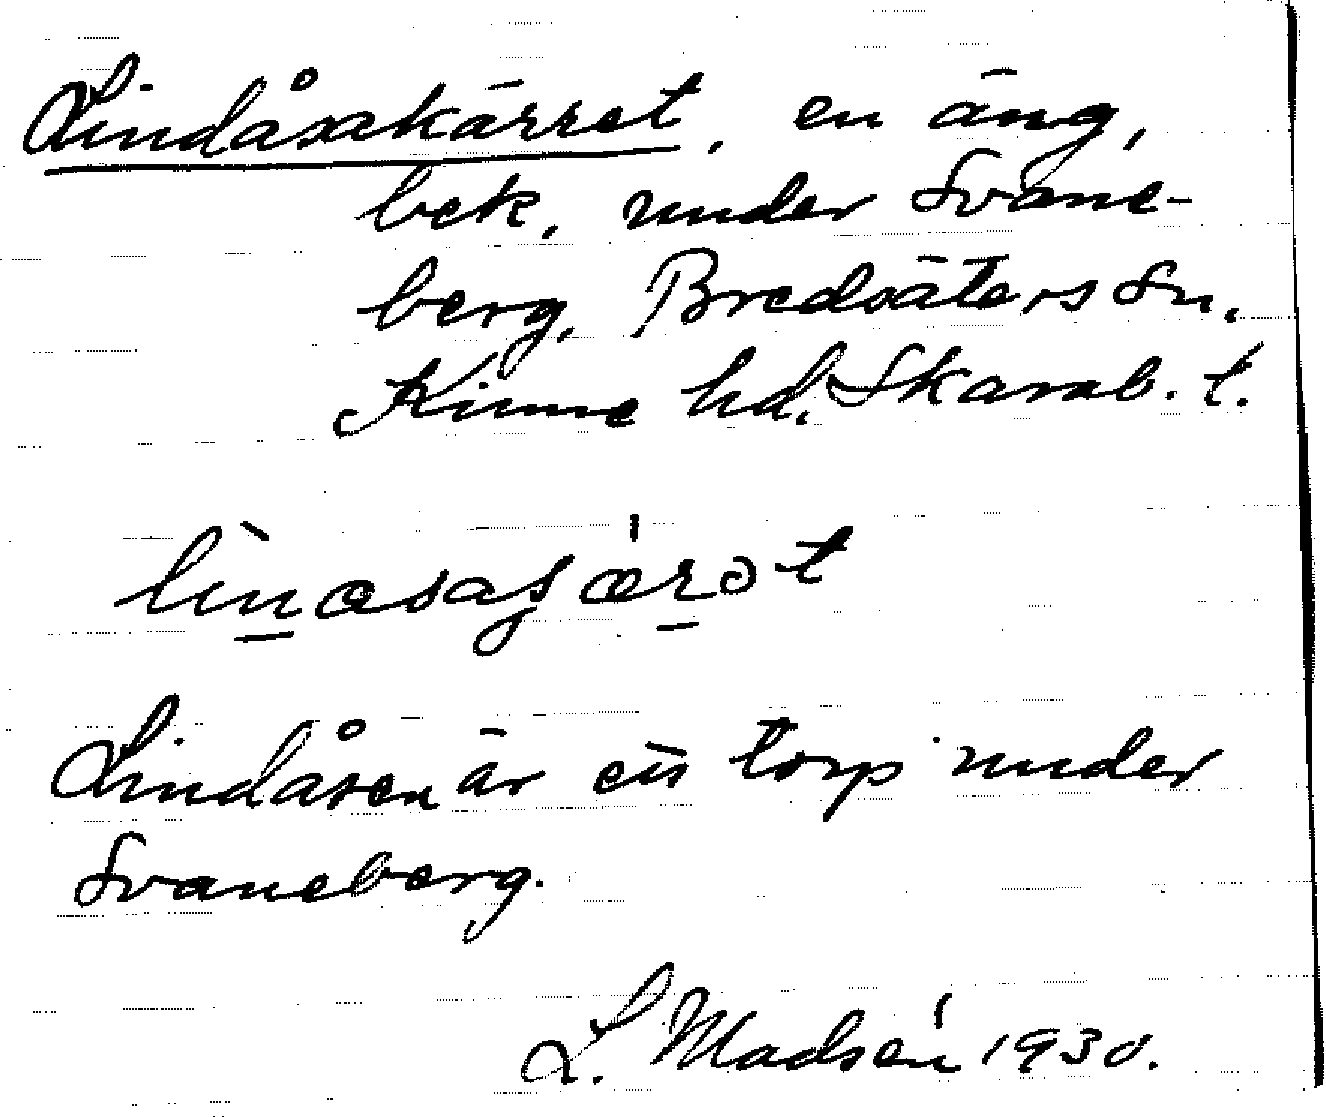 Lindåsakärret, en äng,
bek. under Svane-
berg, Bredsäters sn.
Kinne hd. Skarab. l.
Lindåsen är ett torp under
Svaneberg.
L. Madsén 1930.